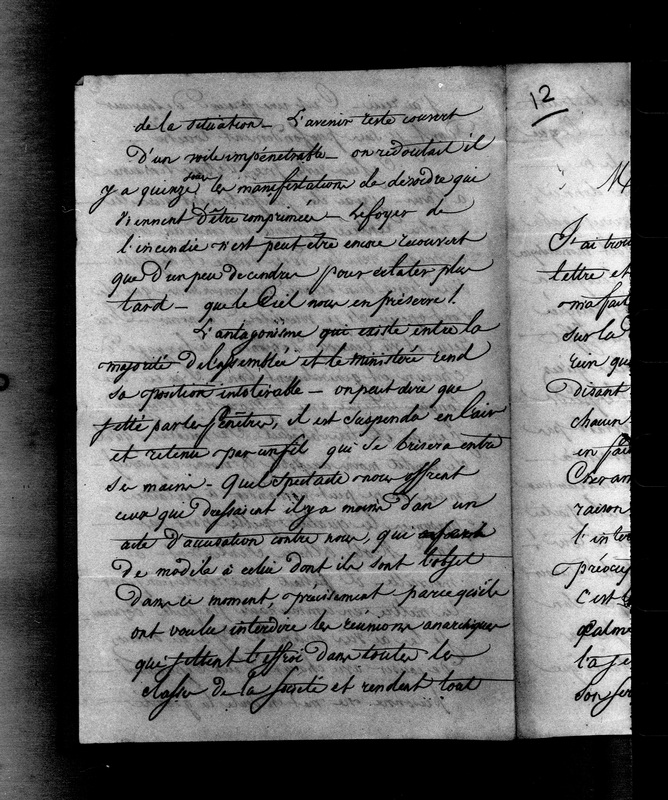 de la situation — L'avenir reste couvert
D'un voile impénétrable — on redoutait il
y a quinze jours les manifestations de desordre qui
viennent D'être comprimées — Le foyer de
l'incendie n'est peut être encore recouvert
que D'un peu de cendres pour éclater plus
tard — que le Ciel nous en préserve !
L'antagonisme qui existe entre la
majorité de l'assemblée et le ministére rend
sa position intolérable — on peut dire que
jetté par les fenêtres, il est suspendu en l'air
et retenu par un fil qui se brisera entre
ses mains — Quel spectacle nous offrent
ceux que dressaient il y a moins d'un an un
acte D'accusation contre nous, qui
de modèle à celui dont ils sont l'objet
Dans ce moment, précisement parce qu'ils
ont voulu interdire les réunions anarchiques
qui jettent l'effroi Dans toutes les
classes de la société et rendent tout
12
M
J'ai trou
lettre et
m'a fait
sur la
rien que
Disant
chacun
en fai
raison
l'inter
préocup
c'est
calme
la se
son ser